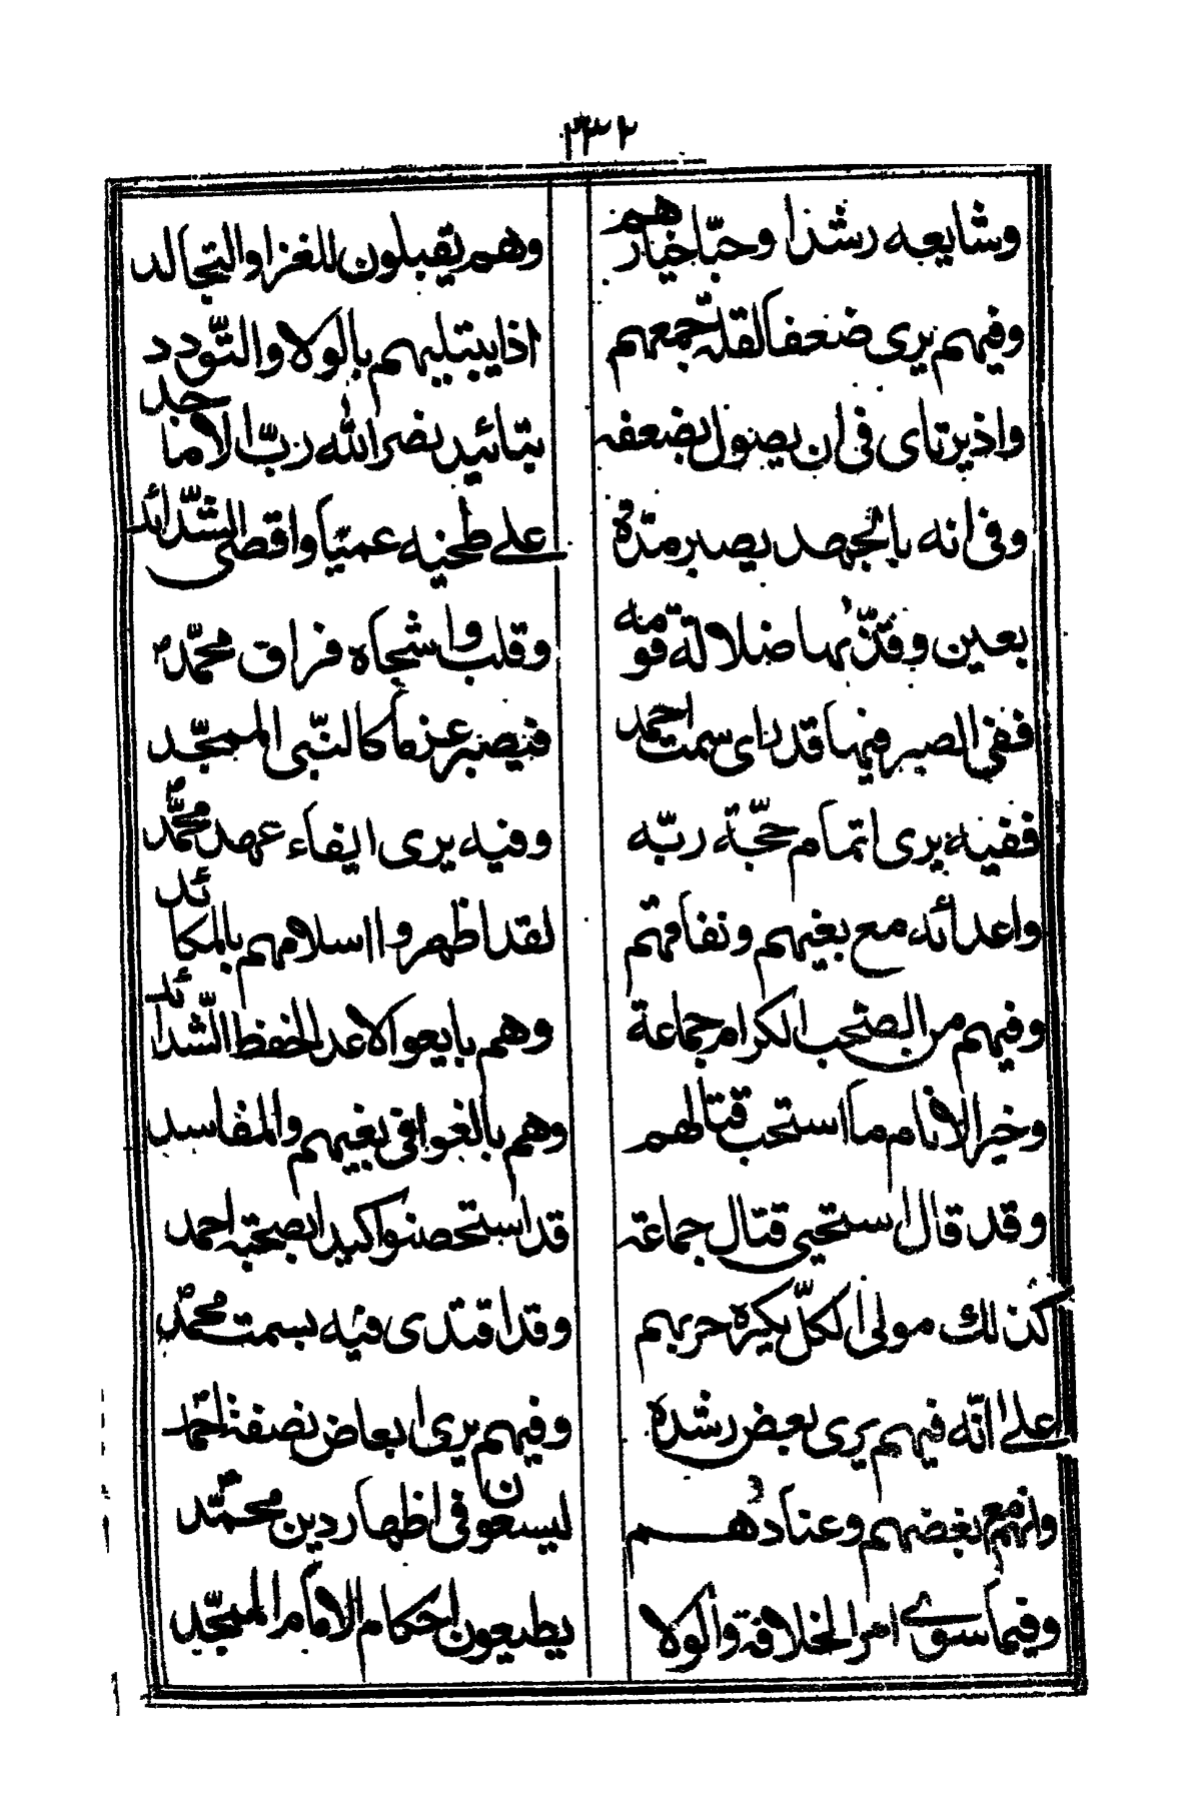 ٣٣٢
وشايعه رشدا وحبّا خيارهم
وهم يقبلون للغزا والتجالد
وفيهم يرى ضعفا لقلة جمعهم
اذا يبتليهم بالولا والتّودد
واذ يرتاى فى ان يصول بضعفه
بتائيد نصر الله ربّ الاماجد
وفى انه بالجهد يصبر مدّة
على طخيه عميا واقصى الشّدائد
بعين وقذّ بها ضلالة قومه
وقلب واشجاه فراق محمّد
ففى الصبر فيها قد راى سمت احمد
فيصبر عزما كالنّبى الممجّد
ففيه يرى اتمام حجّة ربّه
وفيه يرى ايفاء عهد محمّد
واعدائه مع بغيهم ونفاقهم
لقد اظهروا اسلامهم بالمكائد
وفيهم من الصحب الكرام جماعة
وهم بايعوا لاعد الحفظ الشّدائد
وخير الانام ما استحب قتالهم
وهم بالغوا فى بغيهم والمفاسد
وقد قال استحيى قتال جماعة
قد استحصنوا كيدا بصحبة احمد
كذلك مولى الكلّ يكره حربهم
وقد اقتدى فيه بسمت محمّد
على انّه فيهم يرى بعض رشده
وفيهم يرى ابعاض نصفة احمد
وانهم مع بغضهم وعنادهم
ليسعون فى اظهار دين محمّد
وفيما سوى امر الخلافة والولا
يطيعون احكام الامام الممجّد